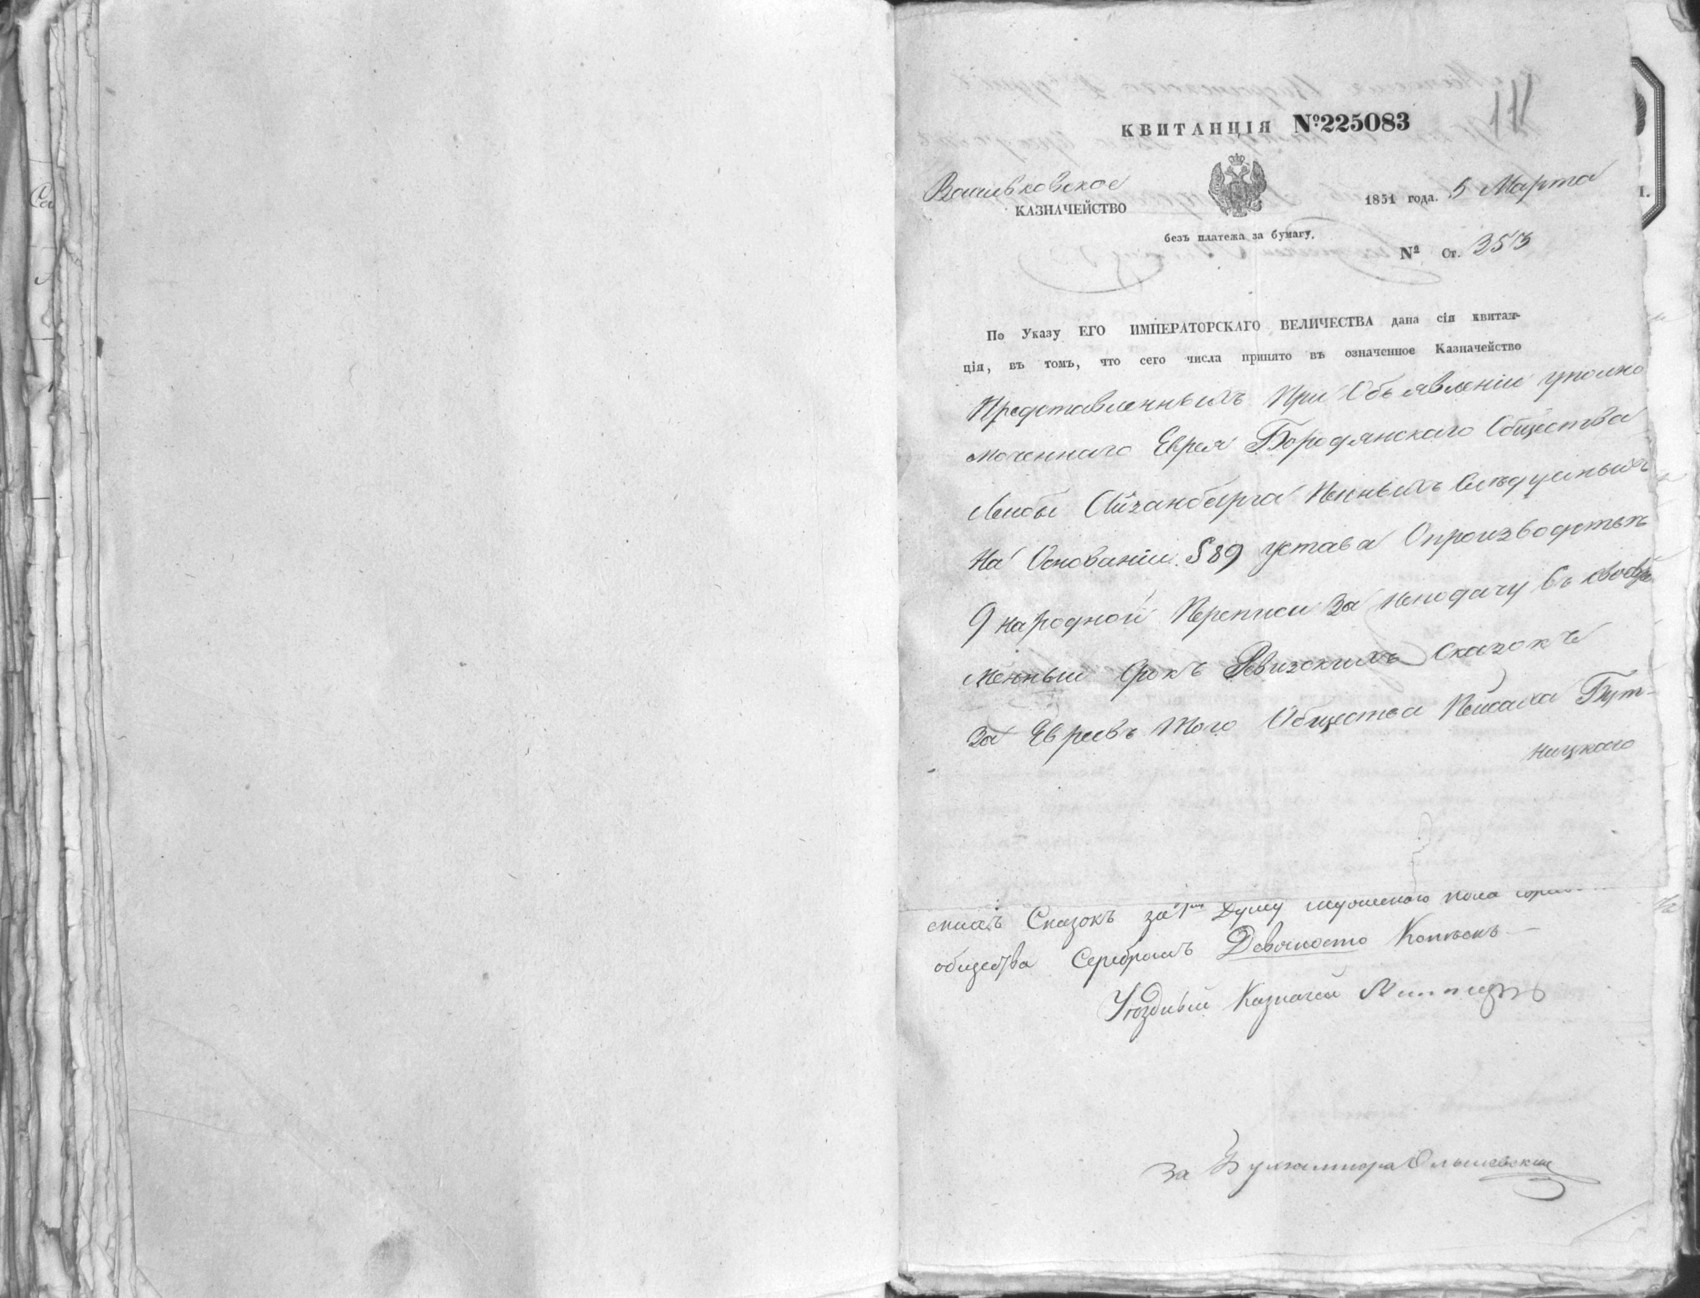 111
КВИТАНЦІЯ №225083
Васильковское
КАЗНАЧЕЙСТВО
1851 года. 5 Марта
безъ платежа за бумагу.
№ Ст. 353
По Указу ЕГО ИМПЕРАТОРСКАГО ВЕЛИЧЕСТВА дана сія квитан-
ція, въ томъ, что сего числа принято въ означенное Казначейство
Представленныхъ При Объявленіи уполно
моченнаго Еврея Бородянскаго Общества
Лейбы Айзанберга Пенныхъ Следуемыхъ
На Основаніи §89 устава О производстве
9 народной Переписи За неподачу въ
менный Срокъ Ревизскихъ Сказокъ
За Евреевъ Того Общества Пейсаха Бут-
ницкаго
Сказокъ за 1 Душу мужескаго пола
общества Серебромъ Девяносто Копѣекъ
Уездный Казначей
За Бухгалтера Ольшевскій